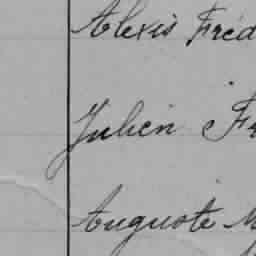 Alexis Fréd
Julien Fr
Auguste M